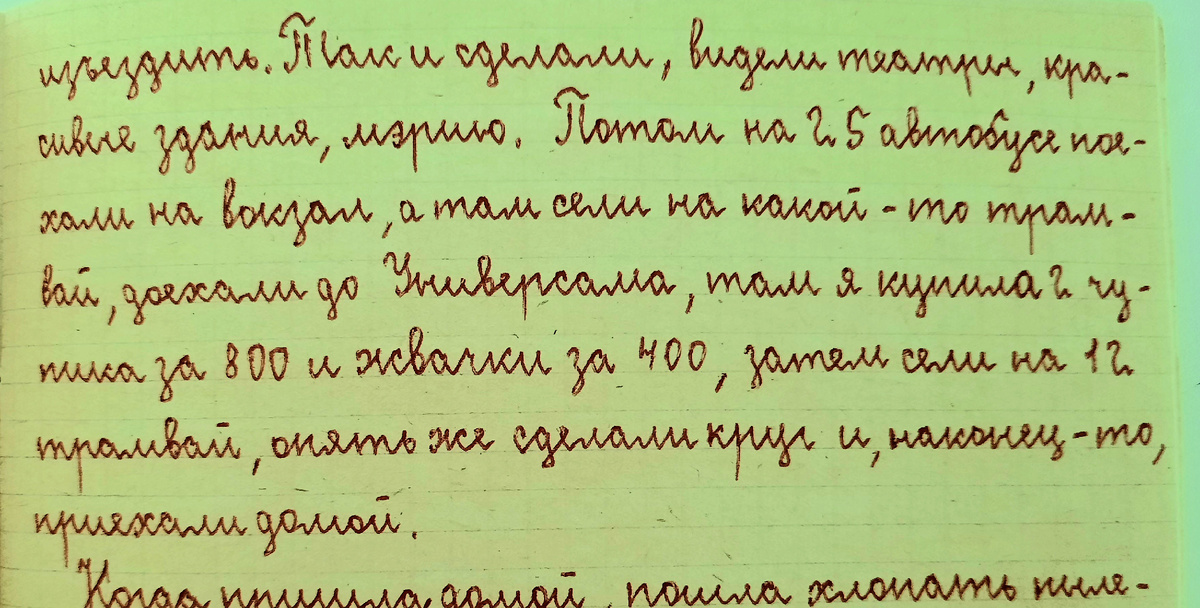 изъездить. Так и сделали, видели театры, кра-
сивые здания, мэрию. Потом на 25 автобусе пое-
хали на вокзал, а там сели на какой-то трам-
вай, доехали до Универсама, там я купила 2 чу-
пика за 800 и жвачки за 400, затем сели на 12
трамвай, опять же сделали круг и, наконец-то,
приехали домой.
Когда пришла домой, пошла хлопать пыле-